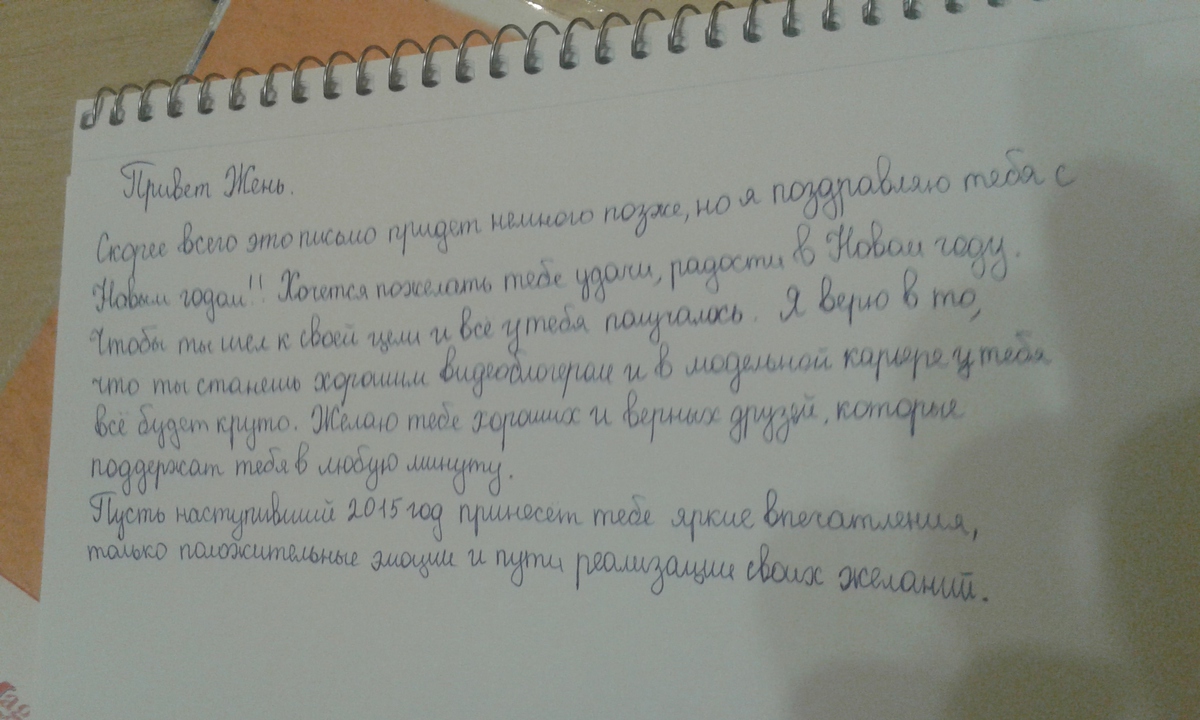 Привет Жень.
Скорее всего это письмо придет немного позже, но я поздравляю тебя с
Новым годом!! Хочется пожелать тебе удачи, радости в Новом году.
Чтобы ты шел к своей цели и всё у тебя получалось. Я верю в то,
что ты станешь хорошим видеоблогером и в модельной карьере у тебя
всё будет круто. Желаю тебе хороших и верных друзей, которые
поддержат тебя в любую минуту.
Пусть наступивший 2015 год принесёт тебе яркие впечатления,
только положительные эмоции и пути реализации своих желаний.